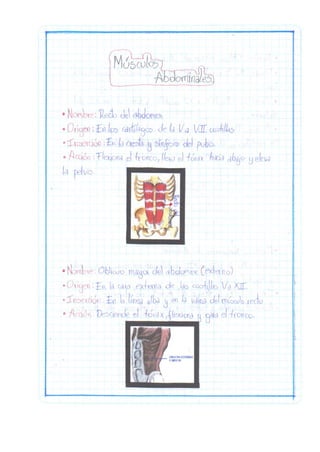 Músculos
Abdominales
• Nombre: Recto del abdomen
• Origen: En los cartílagos de la V a VII costilla
• Inserción: En la cresta y sínfisis del pubis
• Acción: Flexiona el tronco, lleva el tórax hacia abajo y eleva
la pelvis.
• Nombre: Oblicuo mayor del abdomen (externo)
• Origen: En la cara externa de las costillas V a XII
• Inserción: En la línea alba y en la del músculo recto
• Acción: Desciende el tórax, flexiona y gira el tronco.